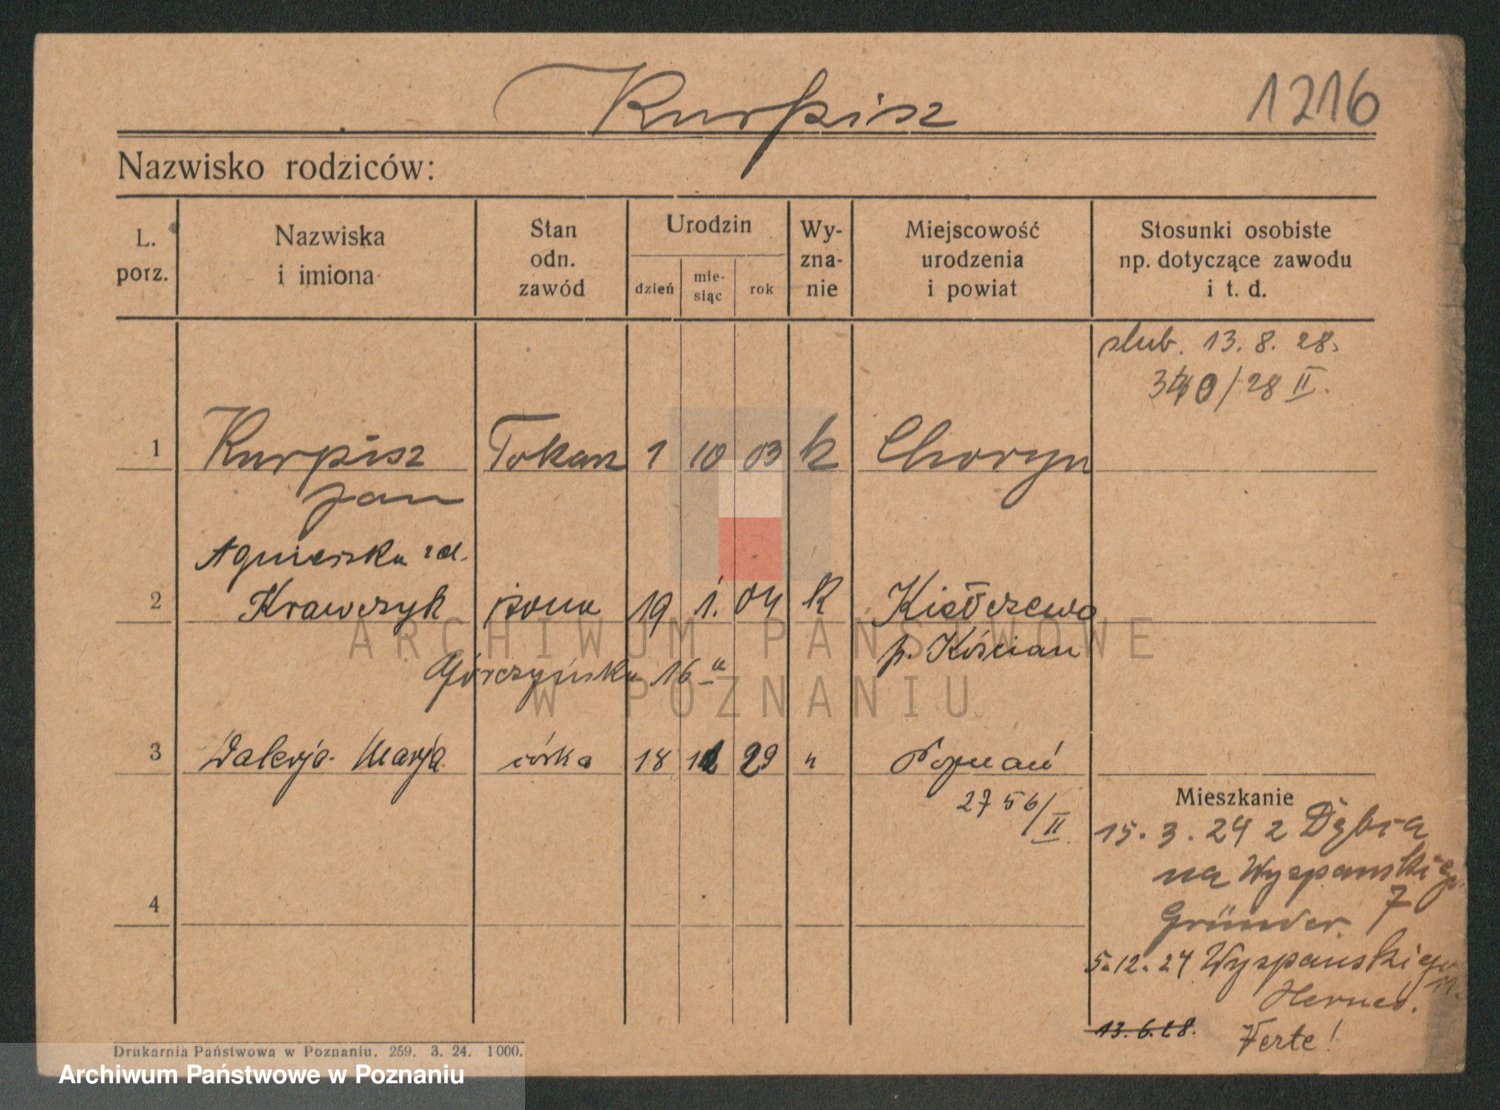 Kurpisz
1216
Nazwisko rodziców:
L. porz.
Nazwiska i imiona
Stan odn. zawód
Urodzin
dzień
mie- siąc
rok
Wy- zna- nie
Miejscowość urodzenia i powiat
Stosunki osobiste np. dotyczące zawodu i t. d.
ślub. 13. 8. 28.
/28 II.
1 Kurpisz Tokarz 1 10 03 k Choryn
Jan
Agnieszka
2 Krawczyk żona 19 1. 04 k Kiełczewo
p. Kościan
Górczyńska 16a
3 Walerja Marja córka 18 29 " Poznań
2756/II
Mieszkanie
15. 3. 24 z Dębca
na Wyspańskiego
7
Gründer.
4
5.12.24 Wyspańskiego
11.
13.6.28.
Verte!
Drukarnia Państwowa w Poznaniu. 259. 3. 24. 1000.
ARCHIWUM PAŃSTWOWE
W POZNANIU
Archiwum Państwowe w Poznaniu